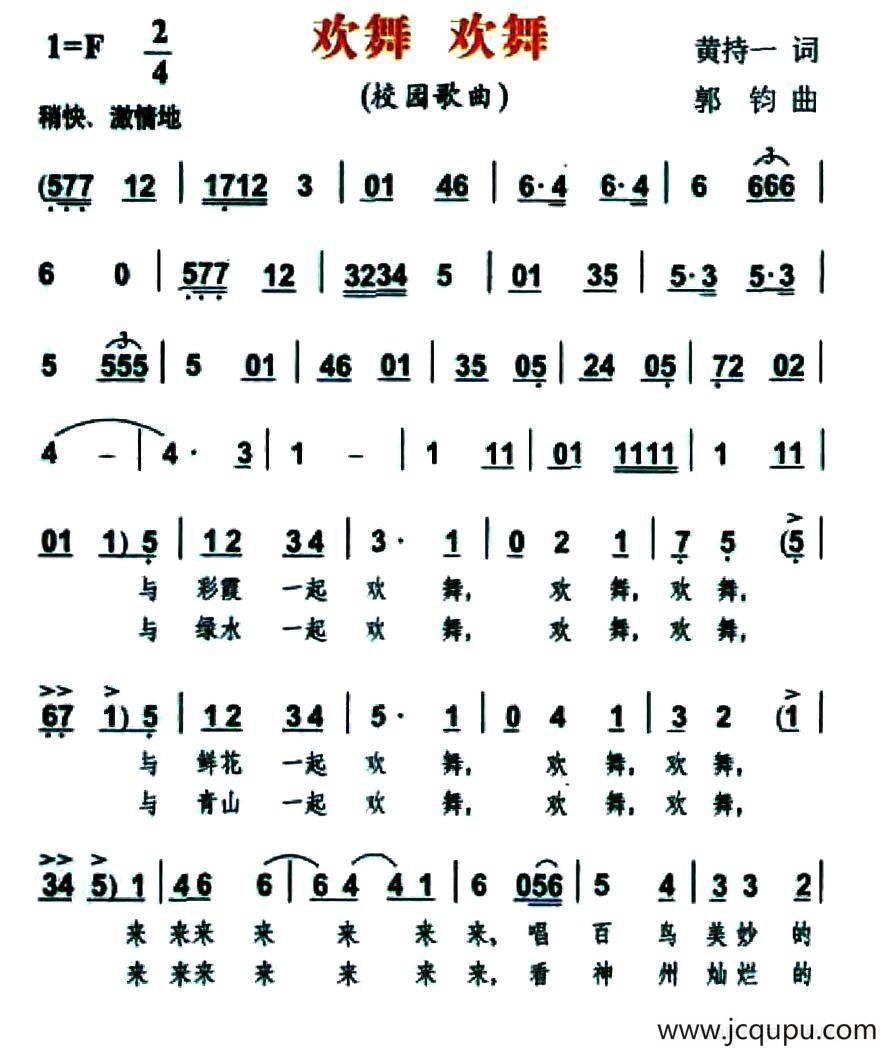 欢舞 欢舞
1=F 2/4
(校园歌曲)
黄持一 词
郭 钧 曲
稍快、激情地
(577 12 | 1712 3 | 01 46 | 6·4 6·4 | 6 666 |
6 0 | 577 12 | 3234 5 | 01 35 | 5·3 5·3 |
5 555 | 5 01 | 46 01 | 35 05 | 24 05 | 72 02 |
4 – | 4· 3 | 1 – | 1 11 | 01 1111 | 1 11 |
01 1) 5 | 12 34 | 3· 1 | 0 2 1 | 7 5 (5 |
与 彩霞 一起 欢 舞, 欢 舞, 欢 舞,
与 绿水 一起 欢 舞, 欢 舞, 欢 舞,
67 1) 5 | 12 34 | 5· 1 | 0 4 1 | 3 2 (1 |
与 鲜花 一起 欢 舞, 欢 舞, 欢 舞,
与 青山 一起 欢 舞, 欢 舞, 欢 舞,
34 5) 1 | 46 6 | 64 41 | 6 056 | 5 4 | 33 2 |
来 来来 来 来 来 来, 唱 百 鸟 美妙 的
来 来来 来 来 来 来, 看 神 州 灿烂 的
www.jcqupu.com